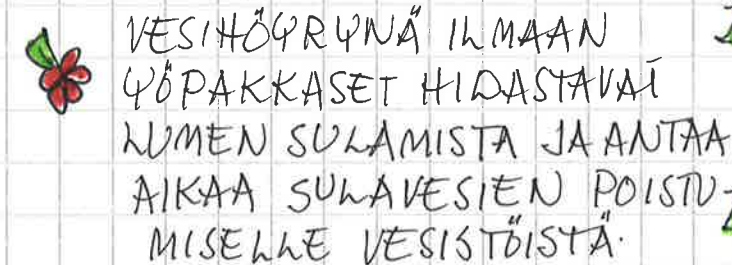 VESIHÖYRYNÄ ILMAAN
YÖPAKKASET HIDASTAVAT
LUMEN SULAMISTA JA ANTAA
AIKAA SULAVESIEN POISTU-
MISELLE VESISTÖISTÄ.